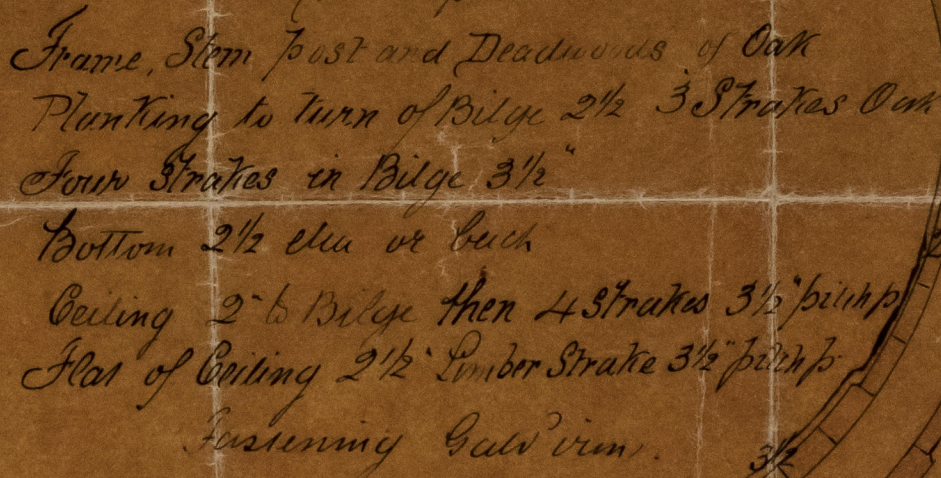 Frame, Stem post and Deadwoods of Oak
Planking to turn of Bilge 2½ 3 Strakes Oak
Four strakes in Bilge 3½"
Bottom 2½ elm or beech
Ceiling 2" to Bilge then 4 strakes 3½" pitch p
Flat of Ceiling 2½" Limber Strake 3½" pitch p
Fastening Galv iron.
3½